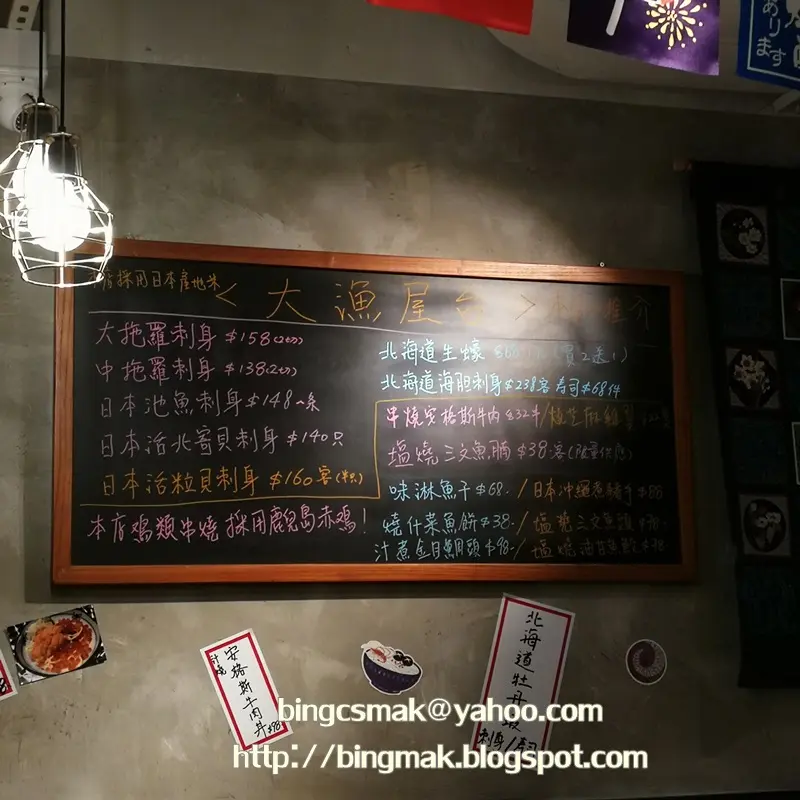 あります
本店採用日本產地米
<大漁屋台>
推介
大拖羅刺身 $158(2切)
中拖羅刺身 $138(2切)
日本池魚刺身 $148一条
日本活北寄貝刺身 $140只
日本活粒貝刺身 $160客(1隻)
本店鸡類串燒採用鹿児島赤鸡!
北海道生蠔 (買2送1)
北海道海胆刺身$238客 寿司$68件
串燒安格斯牛肉 $32牛/
塩燒三文魚腩 $38客(限量供應)
味淋魚干$68./日本沖繩 $88
燒什菜魚餅$38-/塩燒三文魚頭
汁煮金目鯛頭$98-/塩燒油甘魚鮫
汁燒
安格斯牛肉丼
$98
北海道牡丹蝦
刺身/寿司
bingcsmak@yahoo.com
http://bingmak.blogspot.com